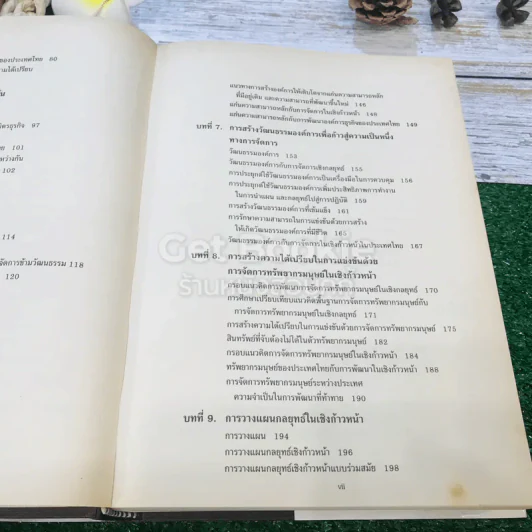 ของประเทศไทย 90
ามได้เปรียบ
กรธุรกิจ 97
101
ว่างกัน
102
114
จัดการข้ามวัฒนธรรม 118
120
แนวทางการสร้างองค์การให้เติบโตจากแก่นความสามารถหลัก
ที่มีอยู่เดิม และความสามารถที่พัฒนาขึ้นใหม่ 146
แก่นความสามารถหลักกับการจัดการในเชิงก้าวหน้า 148
แก่นความสามารถหลักกับการพัฒนาองค์การธุรกิจของประเทศไทย 149
บทที่ 7. การสร้างวัฒนธรรมองค์การเพื่อก้าวสู่ความเป็นหนึ่ง
ทางการจัดการ
วัฒนธรรมองค์การ 153
วัฒนธรรมองค์การกับการจัดการเชิงกลยุทธ์ 155
การประยุกต์ใช้วัฒนธรรมองค์การเป็นเครื่องมือในการควบคุม 156
การประยุกต์ใช้วัฒนธรรมองค์การเพิ่มประสิทธิภาพการทำงาน
ในการนำแผน และกลยุทธ์ไปสู่การปฏิบัติ 159
การสร้างวัฒนธรรมองค์การที่เข้มแข็ง 161
การรักษาความสามารถในการแข่งขันด้วยการสร้าง
ให้เกิดวัฒนธรรมองค์การที่มีชีวิต 165
วัฒนธรรมองค์การกับการจัดการในเชิงก้าวหน้าในประเทศไทย 167
บทที่ 8. การสร้างความได้เปรียบในการแข่งขันด้วย
การจัดการทรัพยากรมนุษย์ในเชิงก้าวหน้า
กรอบแนวคิดการพัฒนาการจัดการทรัพยากรมนุษย์ในเชิงกลยุทธ์ 170
การศึกษาเปรียบเทียบแนวคิดพื้นฐานการจัดการทรัพยากรมนุษย์กับ
การจัดการทรัพยากรมนุษย์ในเชิงกลยุทธ์ 171
การสร้างความได้เปรียบในการแข่งขันด้วยการจัดการทรัพยากรมนุษย์ 175
สินทรัพย์ที่จับต้องไม่ได้ในตัวทรัพยากรมนุษย์ 182
กรอบแนวคิดการจัดการทรัพยากรมนุษย์ในเชิงก้าวหน้า 184
ทรัพยากรมนุษย์ของประเทศไทยกับการพัฒนาในเชิงก้าวหน้า 188
การจัดการทรัพยากรมนุษย์ระหว่างประเทศ
ความจำเป็นในการพัฒนาที่ท้าทาย 190
บทที่ 9. การวางแผนกลยุทธ์ในเชิงก้าวหน้า
การวางแผน 194
การวางแผนกลยุทธ์เชิงก้าวหน้า 196
การวางแผนกลยุทธ์เชิงก้าวหน้าแบบร่วมสมัย 198
vii